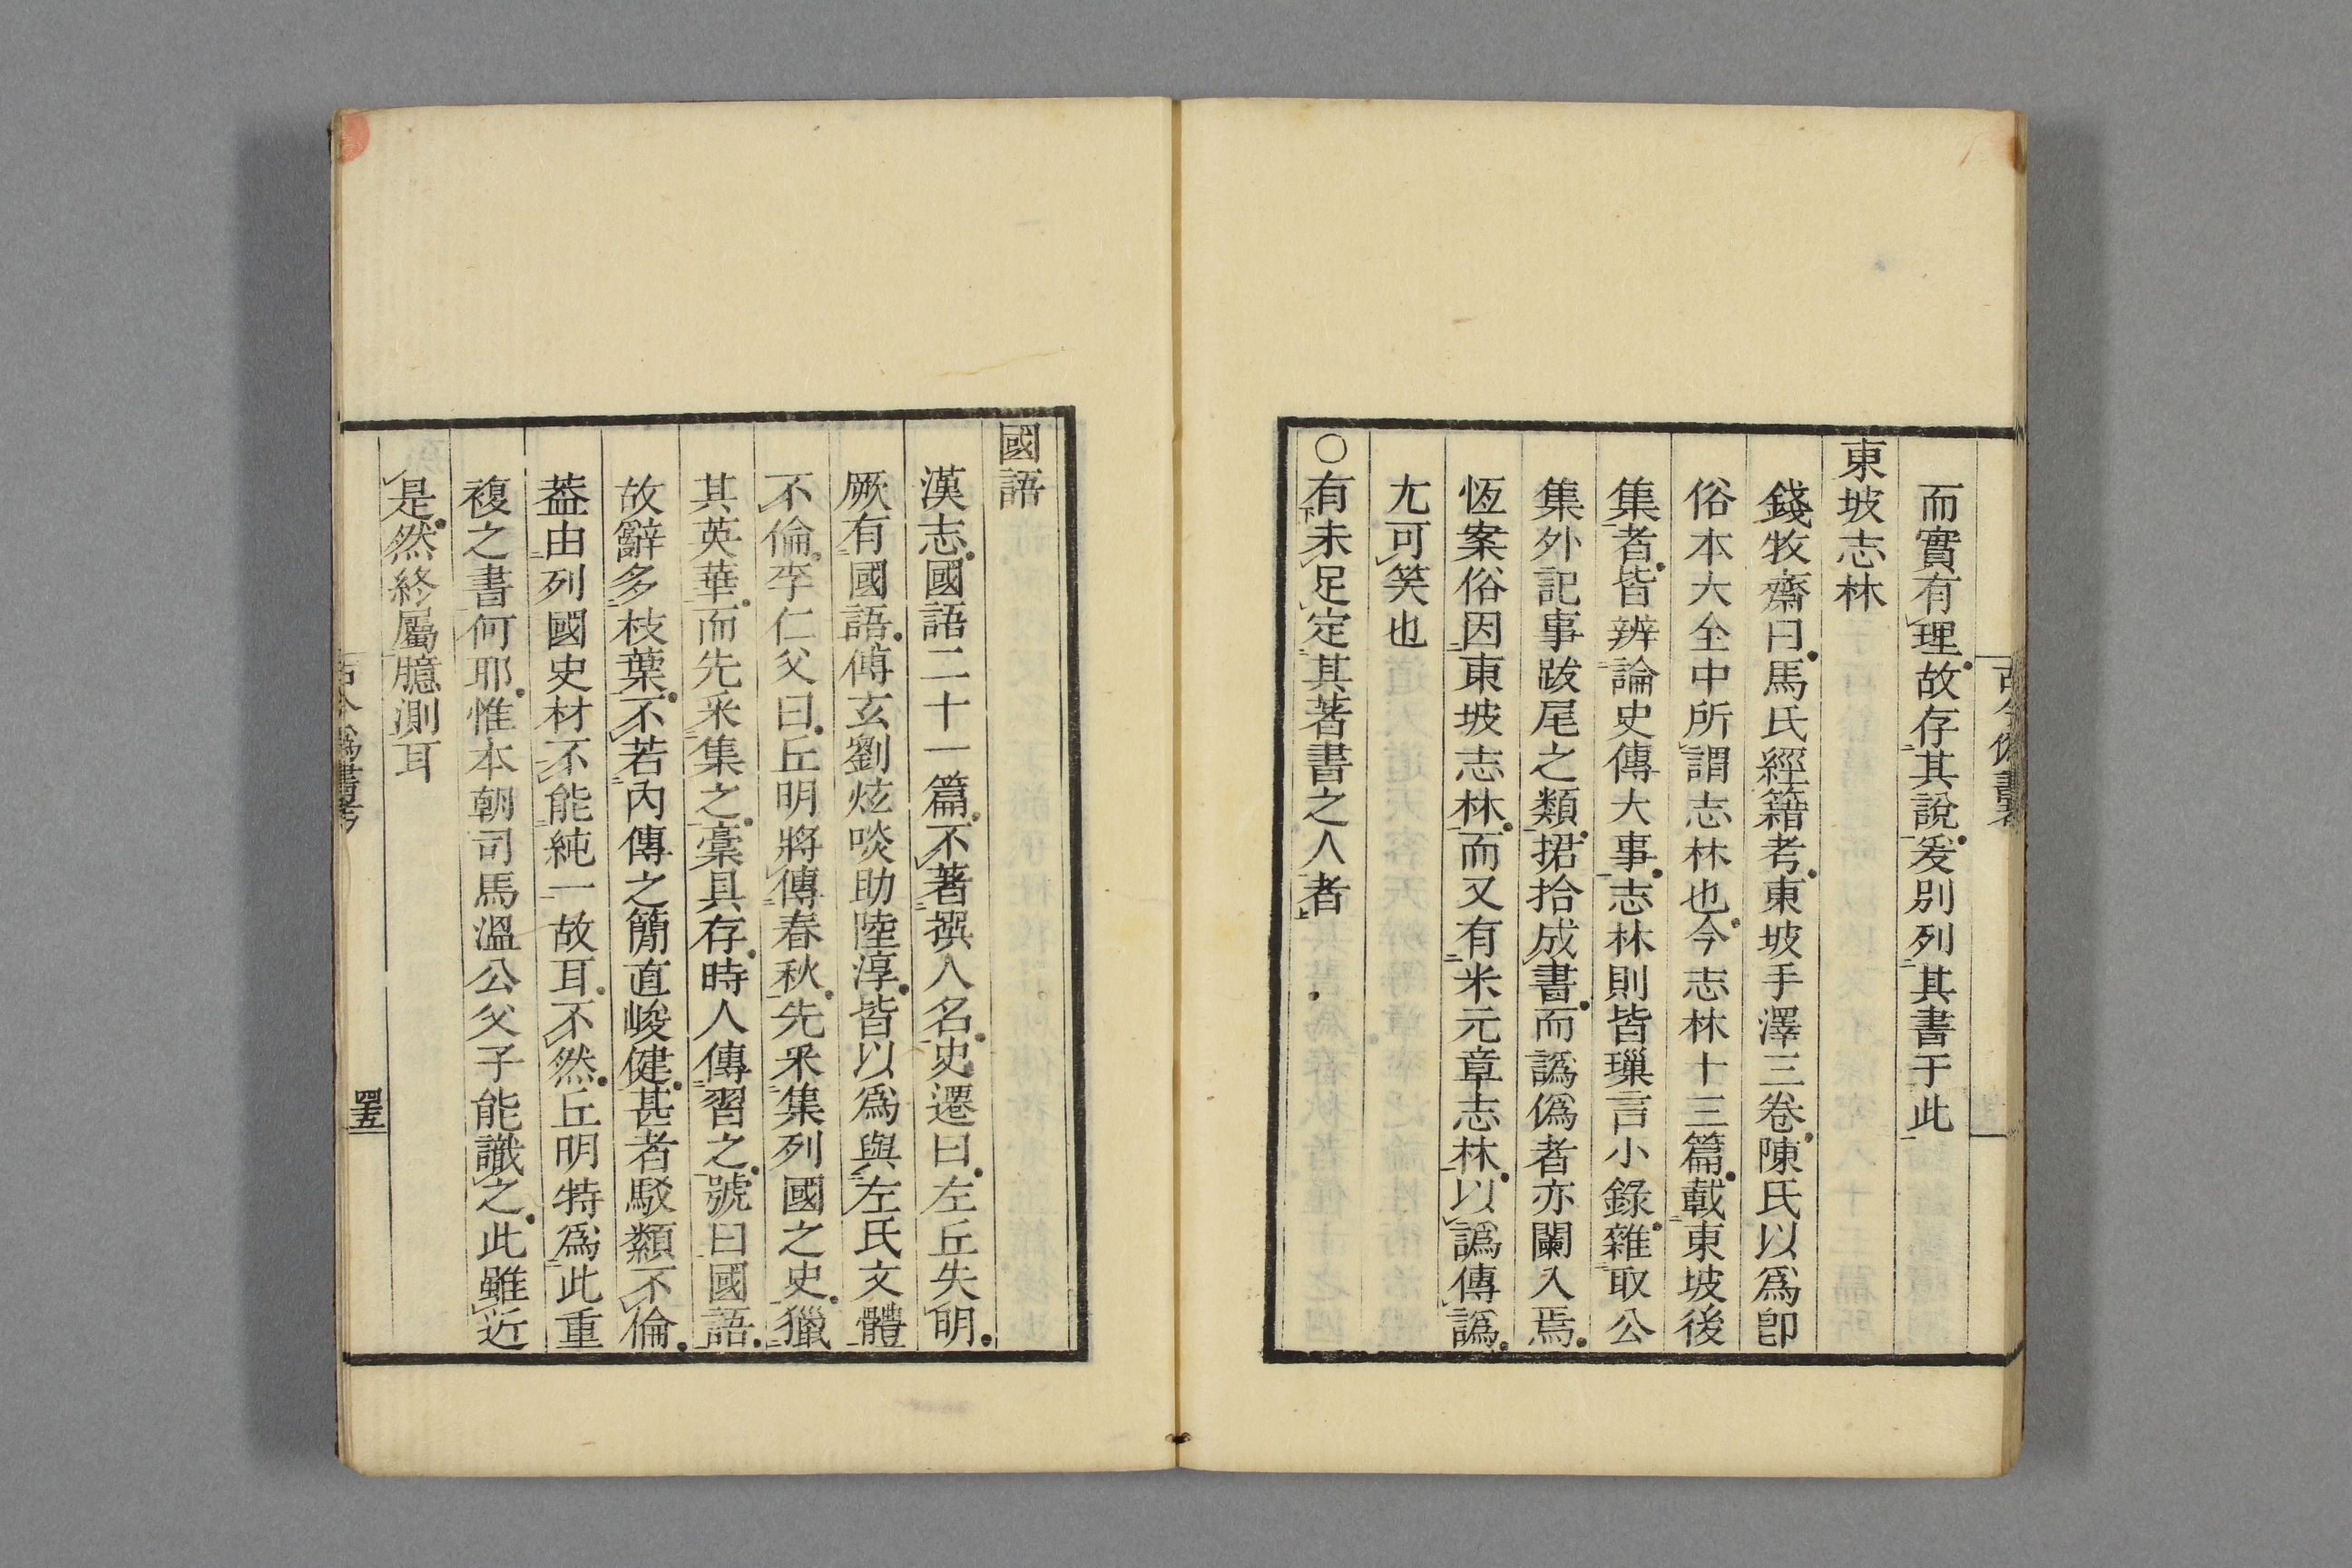 而實有理故存其說爰別列其書于此
東坡志林
錢牧齋曰馬氏經籍考東坡手澤三卷陳氏以爲卽
俗本大全中所謂志林也今志林十三篇載東坡後
集者皆辨論史傳大事志林則皆璅言小錄雜取公
集外記事跋尾之類捃拾成書而譌僞者亦闌入焉
恆案俗因東坡志林而又有米元章志林以譌傳譌
尢可笑也
○有未足定其著書之人者
國語
漢志國語二十一篇不著撰人名史遷曰左丘失明
厥有國語傅玄劉炫啖助陸淳皆以爲與左氏文體
不倫李仁父曰丘明將傳春秋先釆集列國之史獵
其英華而先釆集之藁具存時人傳習之號曰國語
故辭多枝葉不若內傳之簡直峻健甚者駁類不倫
葢由列國史材不能純一故耳不然丘明特爲此重
複之書何耶惟本朝司馬溫公父子能識之此雖近
是然終屬臆測耳
古今僞書考
四五